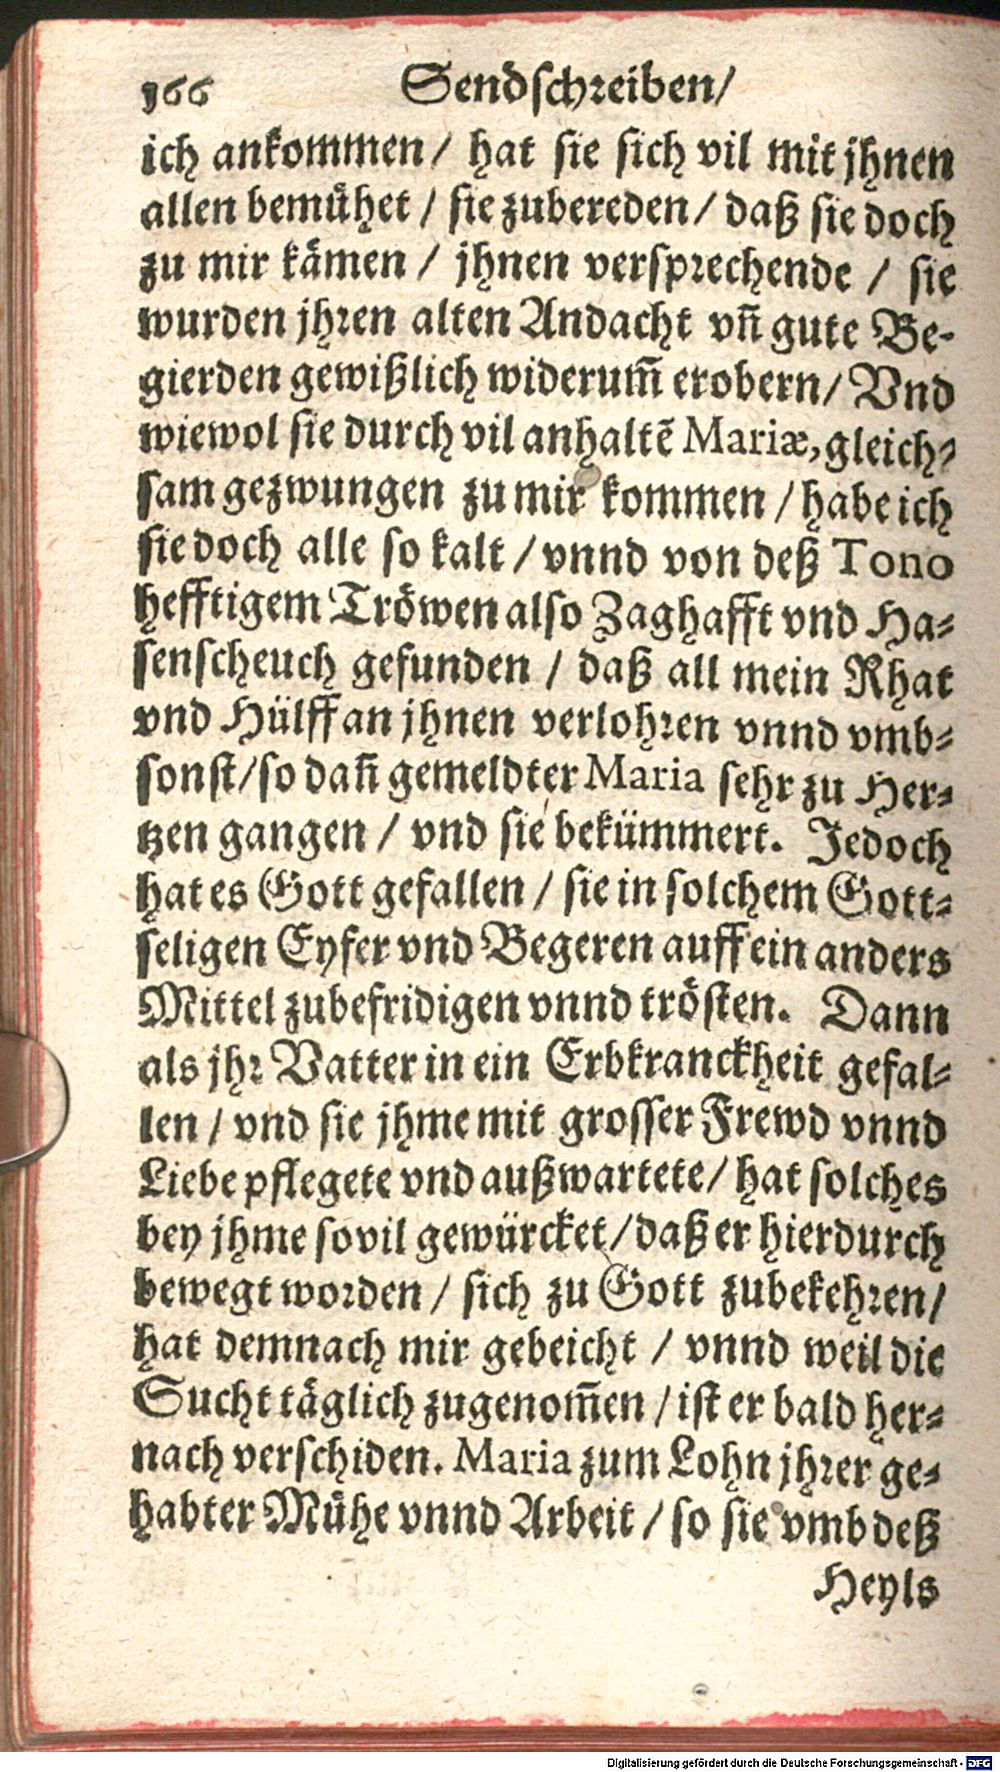 166 Sendschreiben/
ich ankommen/ hat sie sich vil mit jhnen
allen bemühet / sie zubereden/ daß sie doch
zu mir kämen / jhnen versprechende / sie
wurden jhren alten Andacht vñ gute Be-
gierden gewißlich widerum̃ erobern/ Vnd
wiewol sie durch vil anhaltẽ Mariæ, gleich-
sam gezwungen zu mir kommen / habe ich
sie doch alle so kalt / vnnd von deß Tono
hefftigem Tröwen also Zaghafft vnd Ha-
senscheuch gefunden / daß all mein Rhat
vnd Hülff an jhnen verlohren vnnd vmb-
sonst/so dañ gemeldter Maria sehr zu Her-
tzen gangen / vnd sie bekümmert. Jedoch
hat es Gott gefallen / sie in solchem Gott-
seligen Eyfer vnd Begeren auff ein anders
Mittel zubefridigen vnnd trösten. Dann
als jhr Vatter in ein Erbkranckheit gefal-
len / vnd sie jhme mit grosser Frewd vnnd
Liebe pflegete vnd außwartete/ hat solches
bey jhme sovil gewürcket/daß er hierdurch
bewegt worden / sich zu Gott zubekehren/
hat demnach mir gebeicht / vnnd weil die
Sucht täglich zugenom̃en / ist er bald her-
nach verschiden. Maria zum Lohn jhrer ge-
habter Mühe vnnd Arbeit / so sie vmb deß
Heyls
Digitalisierung gefördert durch die Deutsche Forschungsgemeinschaft - DFG